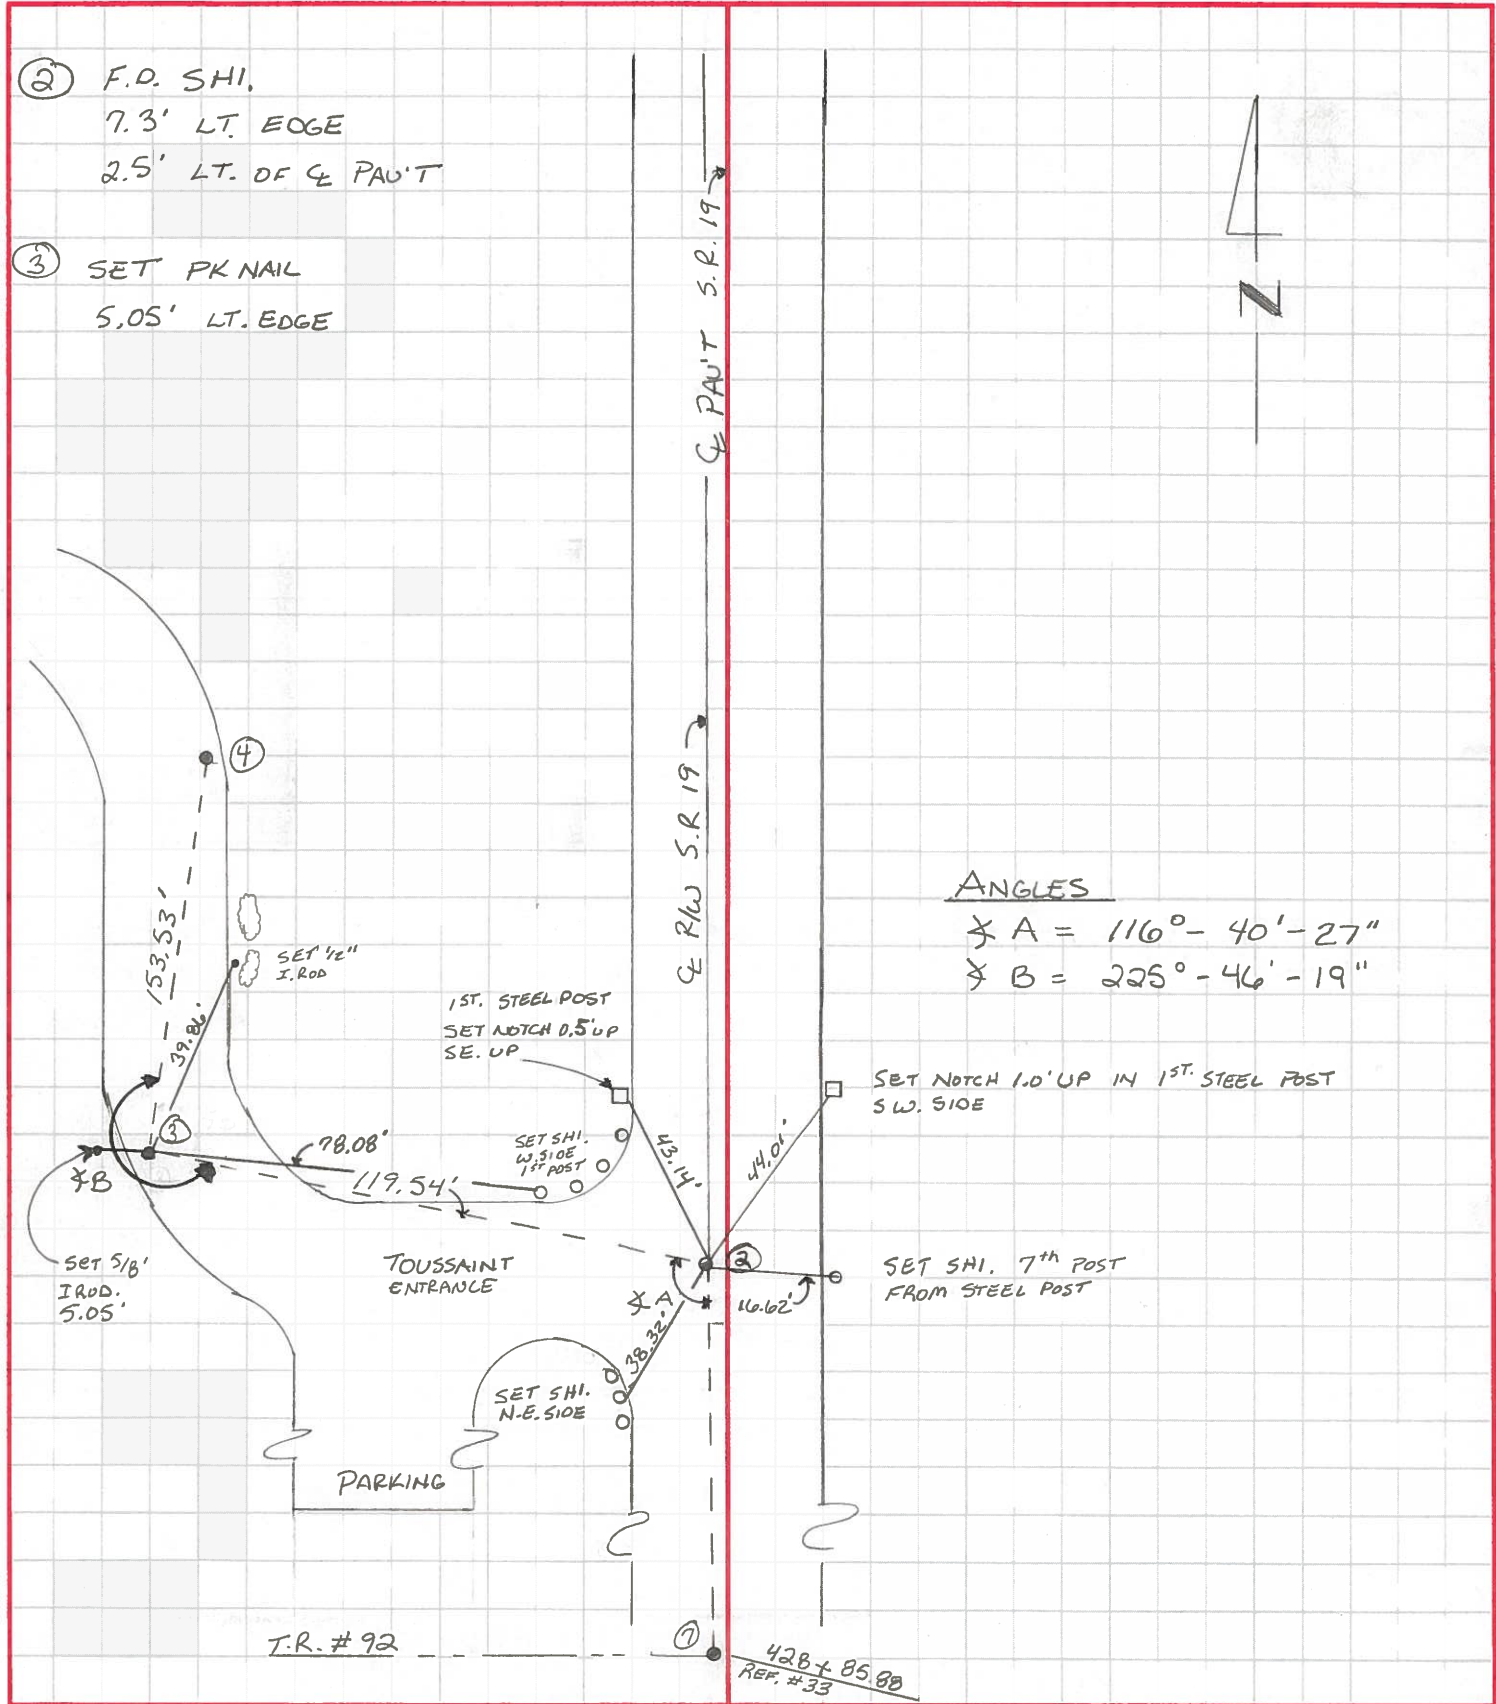 ② F.D. SHI.
7.3' LT. EDGE
2.5' LT. OF ℄ PAV'T
③ SET PK NAIL
5.05' LT. EDGE
℄ PAV'T S.R. 19
N
④
℄ R/W S.R 19
153.53'
39.86'
SET 1/2"
I. ROD
1ST. STEEL POST
SET NOTCH 0.5' UP
SE. UP
ANGLES
∡ A = 116° - 40' - 27"
∡ B = 225° - 46' - 19"
SET NOTCH 1.0' UP IN 1ST. STEEL POST
SW. SIDE
③
∡B
78.08'
119.54'
SET SHI.
W. SIDE
1ST POST
43.14'
44.01'
SET 5/8'
IROD.
5.05'
TOUSSAINT
ENTRANCE
②
∡ A
16.62'
38.32'
SET SHI. 7th POST
FROM STEEL POST
SET SHI.
N.E. SIDE
PARKING
T.R. # 92
⑦
428 + 85.88
REF. #33